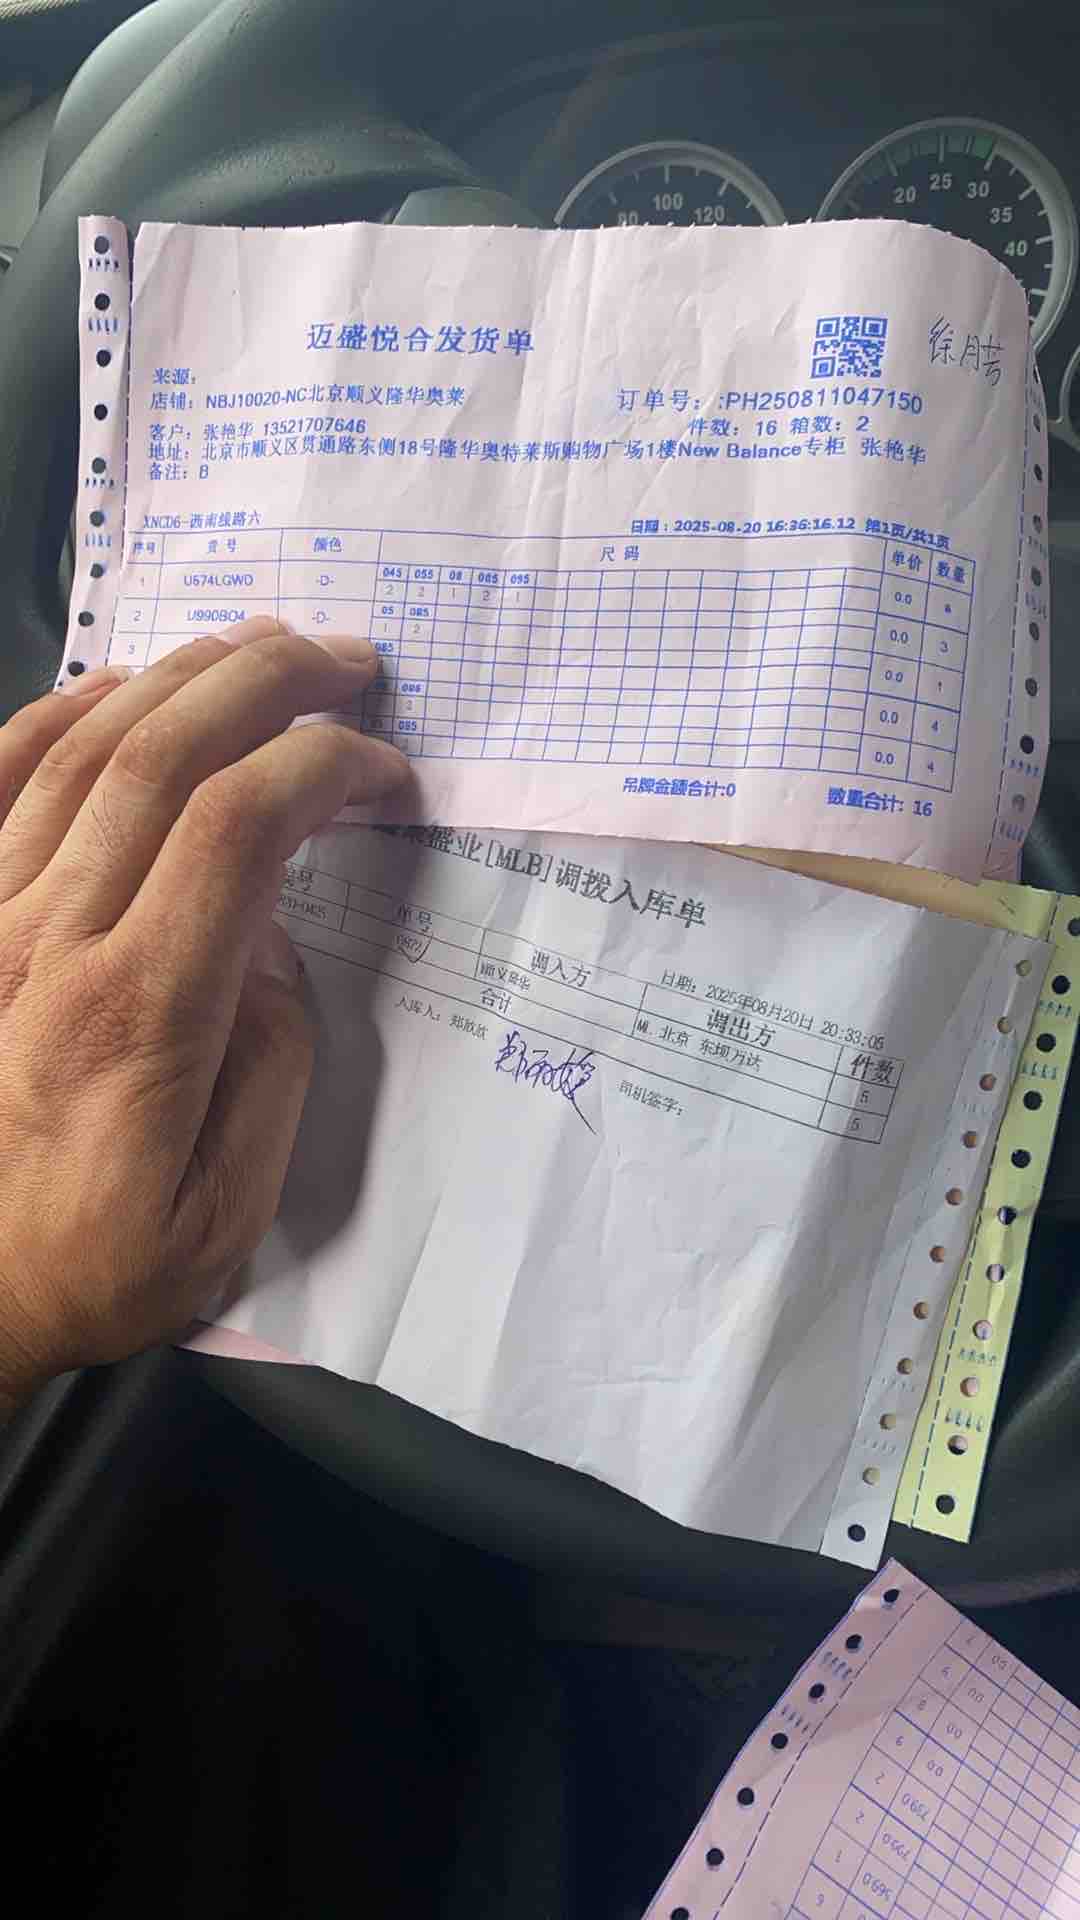 80 100 120
20 25 30 35 40
迈盛悦合发货单
徐月芸
来源：
店铺：NBJ10020-NC北京顺义隆华奥莱
订单号：:PH250811047150
客户：张艳华 13521707646
件数：16 箱数：2
地址：北京市顺义区贯通路东侧18号隆华奥特莱斯购物广场1楼New Balance专柜 张艳华
备注：B
XNCD6-西南线路六
日期：2025-08-20 16:36:16.12 第1页/共1页
序号 货号 颜色 尺码 单价 数量
1 U574LGWD -D- 045 055 08 085 095 0.0 8
2 2 1 2 1
2 U990BO4 -D- 05 085 0.0 3
1 2
3 085 0.0 1
085 0.0 4
2
085 0.0 4
吊牌金额合计:0 数量合计: 16
盛业[MLB]调拨入库单
日期：2025年08月20日 20:33:05
单号 调入方 调出方 件数
顺义隆华 北京 东坝万达 5
合计 5
入库人：郑欣欣
司机签字：
7 00
9 00
8 00
9 00
2 799.0
2 799.0
1 569.0